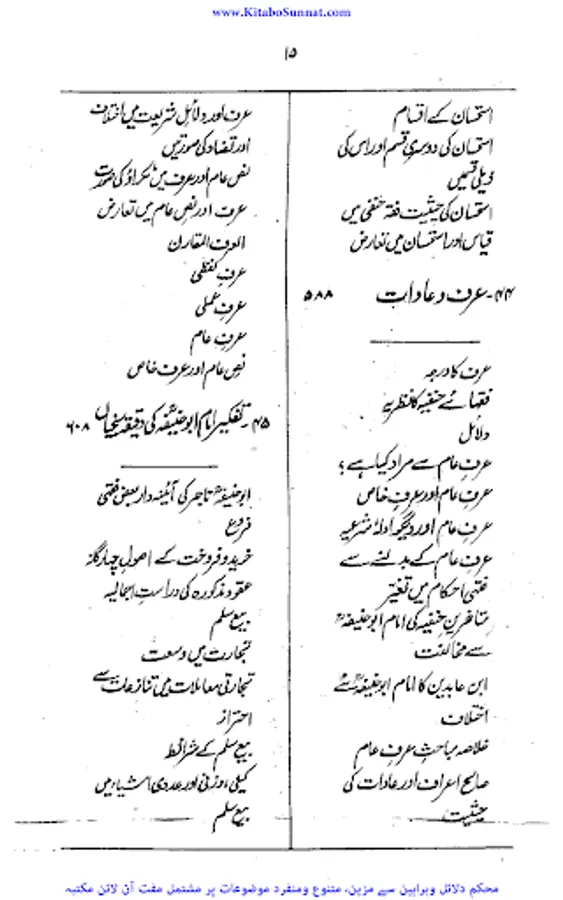 www.KitaboSunnat.com
۱۵
استحسان کے اقسام
استحسان کی دوسری قسم اور اس کی
ذیلی قسمیں
استحسان کی حیثیت فقہ حنفی میں
قیاس اور استحسان میں تعارض
۴۴- عرف و عادات ۵۸۸
عرف کا درجہ
فقہائے حنفیہ کا نظریہ
دلائل
عرفِ عام سے مراد کیا ہے؟
عرفِ عام اور عرفِ خاص
عرفِ عام اور دیگر ادلۂ شرعیہ
عرفِ عام کے بدلنے سے
فقہی احکام میں تغیّر
متاخرین حنفیہ کی امام ابوحنیفہؒ
سے مخالفت
ابن عابدین کا امام ابوحنیفہؒ سے
اختلاف
خلاصہ مباحثِ عرفِ عام
صالح اعراف اور عادات کی
حیثیت
عرف اور دلائلِ شریعت میں اختلاف
اور تضاد کی صورتیں
نص عام اور عرف میں ٹکراؤ کی صورت
عرف اور نصِ عام میں تعارض
العرف المقارن
عرفِ لفظی
عرفِ عملی
عرفِ عام
نصِ عام اور عرف خاص
۴۵- تفکیر امام ابوحنیفہؒ کی دقیقہ سنجیاں ۶۰۸
ابوحنیفہؒ تاجر کی آئینہ دار بعض فقہی
فروع
خرید و فروخت کے اصولِ چہارگانہ
عقود مذکورہ کی دراستِ اجمالیہ
بیع سلم
تجارت میں وسعت
تجارتی معاملات میں تنازعات سے
احتراز
بیع سلم کے شرائط
کیلی، وزنی اور عددی اشیاء میں
بیع سلم
محکم دلائل وبراہین سے مزین، متنوع ومنفرد موضوعات پر مشتمل مفت آن لائن مکتبہ